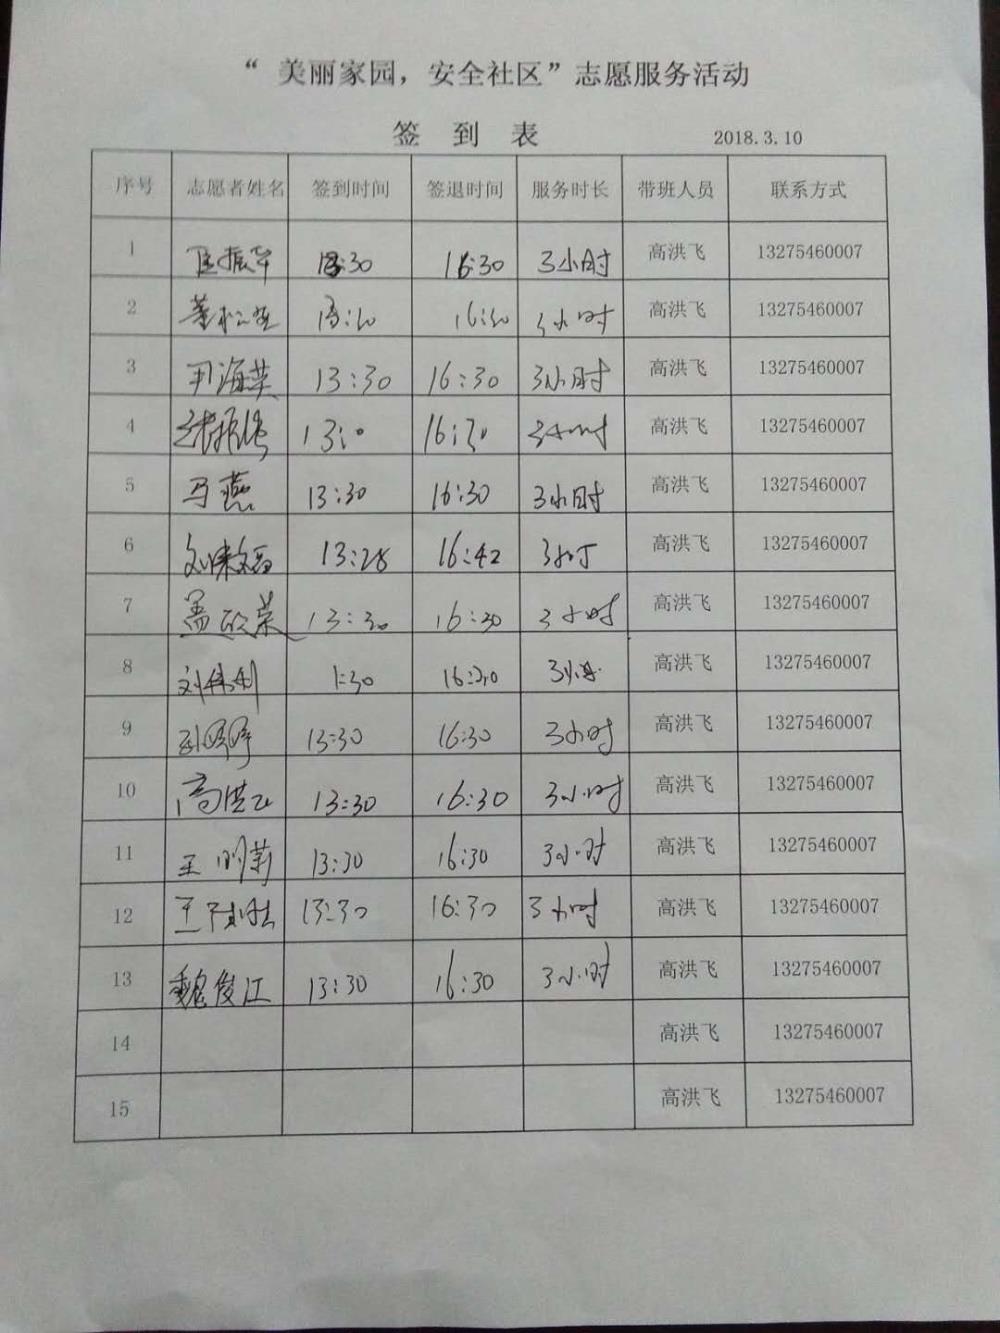 “ 美丽家园，安全社区”志愿服务活动
签 到 表 2018.3.10
序号 志愿者姓名 签到时间 签退时间 服务时长 带班人员 联系方式
1 匡振华 13:30 16:30 3小时 高洪飞 13275460007
2 16:30 小时 高洪飞 13275460007
3 尹海英 13:30 16:30 3小时 高洪飞 13275460007
4 16:30 高洪飞 13275460007
5 马燕 13:30 16:30 3小时 高洪飞 13275460007
6 13:28 16:42 高洪飞 13275460007
7 盖欣荣 13:30 16:30 3小时 高洪飞 13275460007
8 刘伟利 1:30 16:30 高洪飞 13275460007
9 13:30 16:30 3小时 高洪飞 13275460007
10 高洪飞 13:30 16:30 3小时 高洪飞 13275460007
11 王明莉 13:30 16:30 3小时 高洪飞 13275460007
12 13:30 16:30 3小时 高洪飞 13275460007
13 魏俊江 13:30 16:30 3小时 高洪飞 13275460007
14 高洪飞 13275460007
15 高洪飞 13275460007